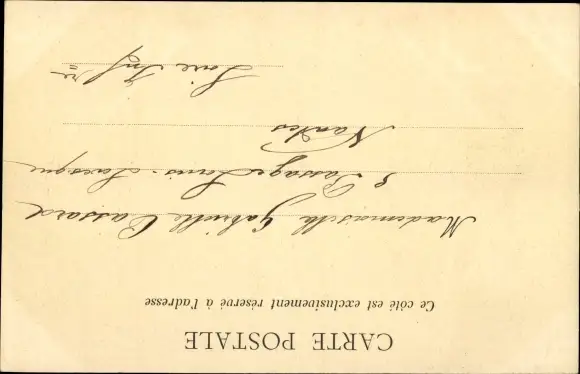 CARTE POSTALE
Ce côté est exclusivement réservé à l'adresse
Mademoiselle Gabrielle Cassard
Passage Louis-
Nantes
Loire Infre